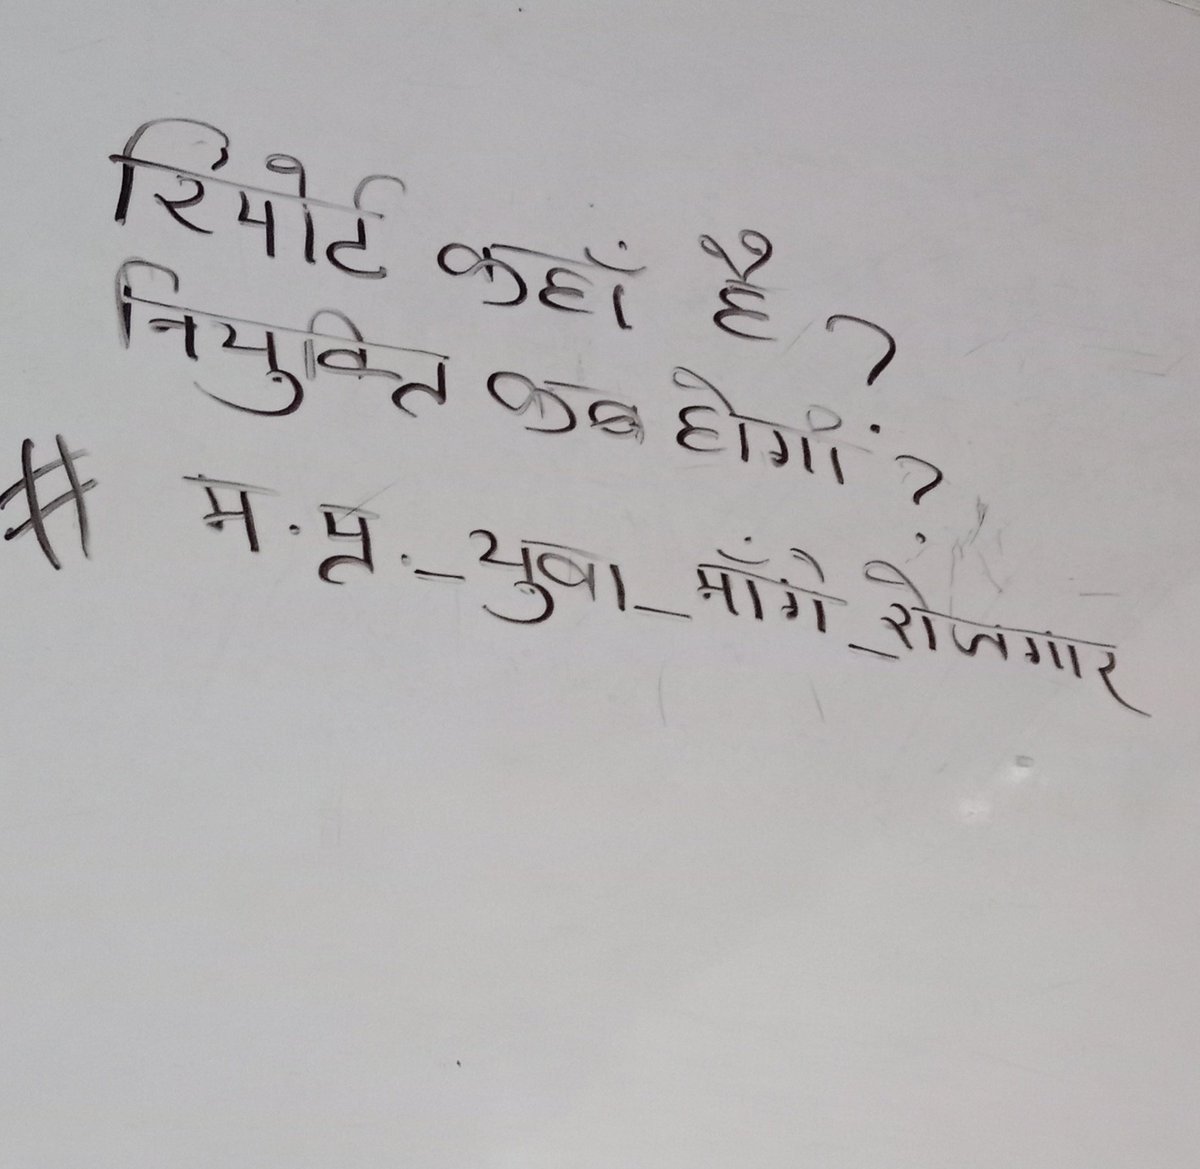 रिपोर्ट कहाँ है ?
नियुक्ति कब होगी ?
# म.प्र._युवा_माँगे_रोजगार